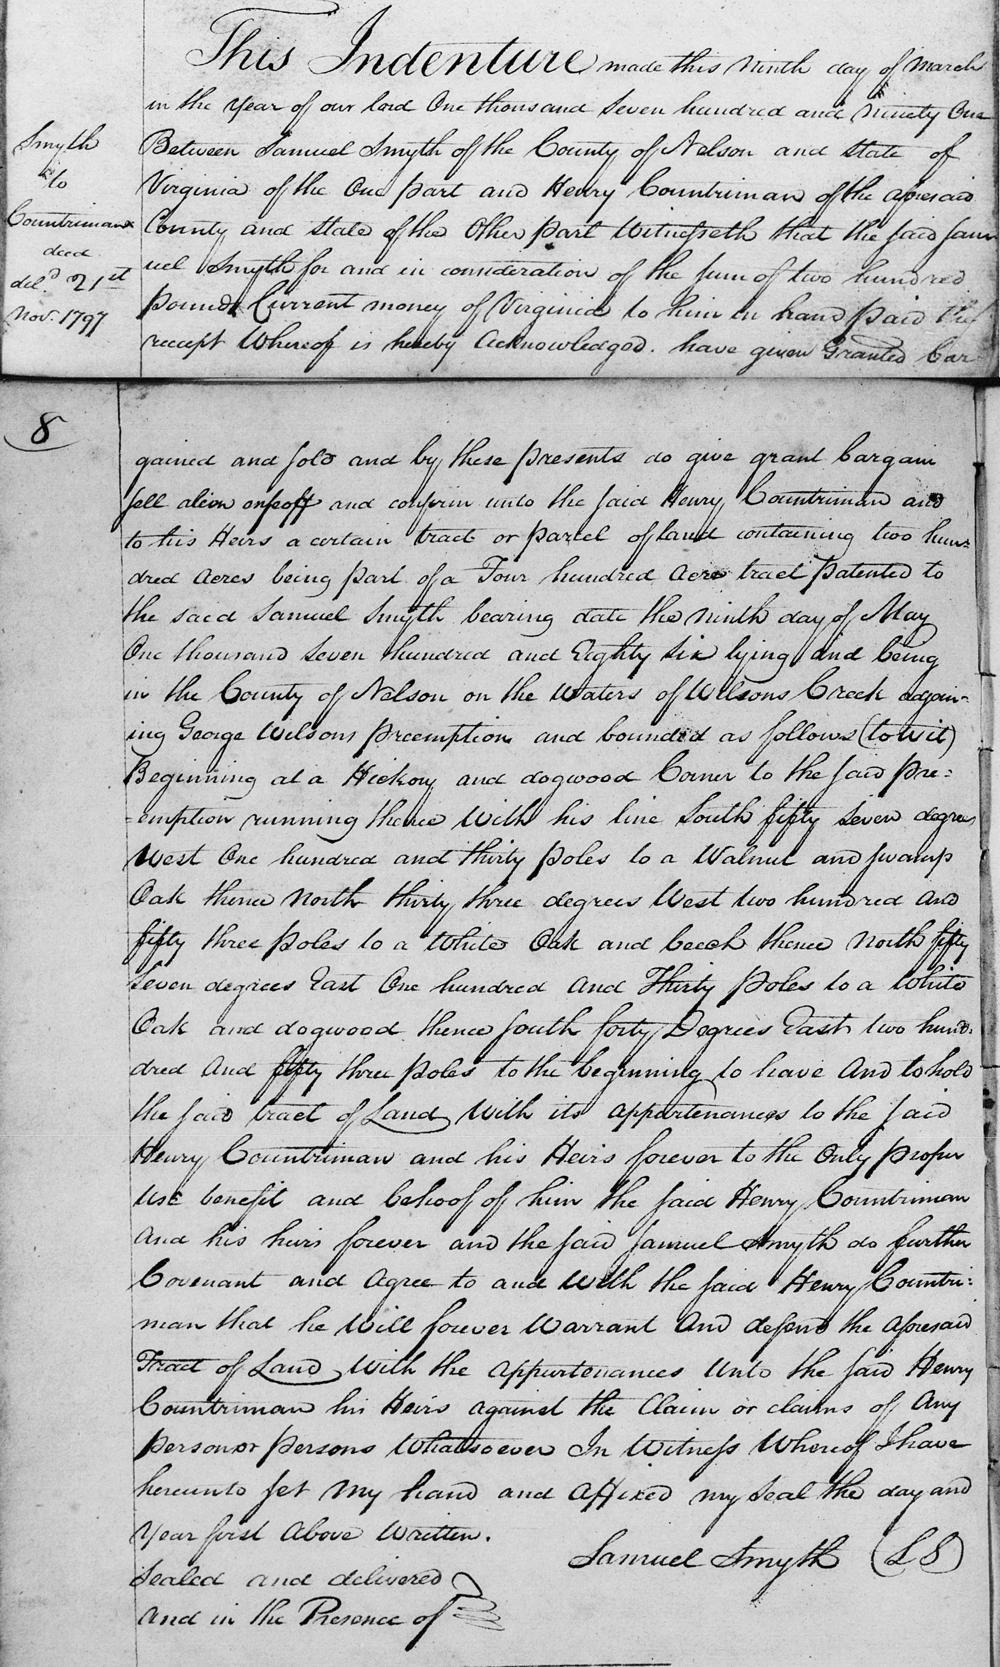 This Indenture made this ninth day of March
in the Year of our lord One thousand Seven hundred and Ninety One
Between Samuel Smyth of the County of Nelson and state of
Virginia of the One part and Henry Countriman of the aforesaid
County and State of the Other part Witnesseth that the said Sam
uel Smyth for and in consideration of the sum of two hundred
pounds Current money of Virginia to him in hand paid the
receipt Whereof is hereby Acknowledged. have given Granted Bar
Smyth
to
Countriman
deed
deld 21st
Nov. 1797
8
gained and sold and by these presents do give grant bargain
sell alien enfeoff and confirm unto the said Henry Countriman and
to his Heirs a certain tract or parcel of land containing two hun-
dred Acres being part of a Four hundred Acre tract patented to
the said Samuel Smyth bearing date the ninth day of May
One thousand Seven hundred and Eighty Six lying and being
in the County of Nelson on the Waters of Wilsons Creek
ing George Wilsons Preemption and bounded as follows (to wit)
Beginning at a Hickory and dogwood Corner to the said Pre=
=emption running thence With his line South fifty Seven degrees
West One hundred and thirty poles to a Walnut and swamp
Oak thence North thirty three degrees West two hundred and
fifty three poles to a White Oak and beech thence North fifty
Seven degrees East One hundred and Thirty poles to a White
Oak and dogwood thence South forty Degrees East two hund=
dred And fifty three poles to the beginning to have And to hold
the said tract of Land With its appurtenances to the said
Henry Countriman and his Heirs forever to the Only proper
Use benefit and behoof of him the said Henry Countriman
And his heirs forever and the said Samuel Smyth do further
Covenant and Agree to and With the said Henry Countri=
man that he Will forever Warrant And defend the Aforesaid
Tract of Land With the Appurtenances Unto the said Henry
Countriman his Heirs against the Claim or claims of Any
person or persons Whatsoever In Witness Whereof I have
hereunto set My hand and Affixed my Seal the day and
Year first Above Written.
Samuel Smyth (LS)
Sealed and delivered
And in the Presence of